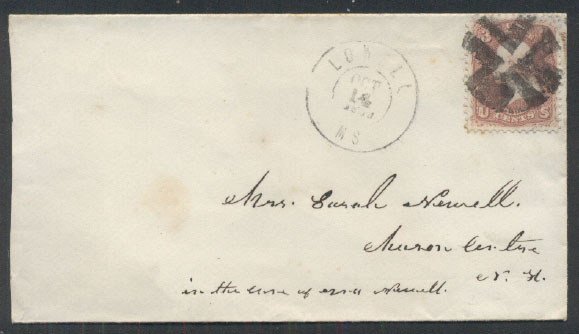 LOWELL
OCT
14
MS
U CENTS S
Mrs. Sarah Newell.
Mason Centre
N. H.
in the care of ezra Newell.